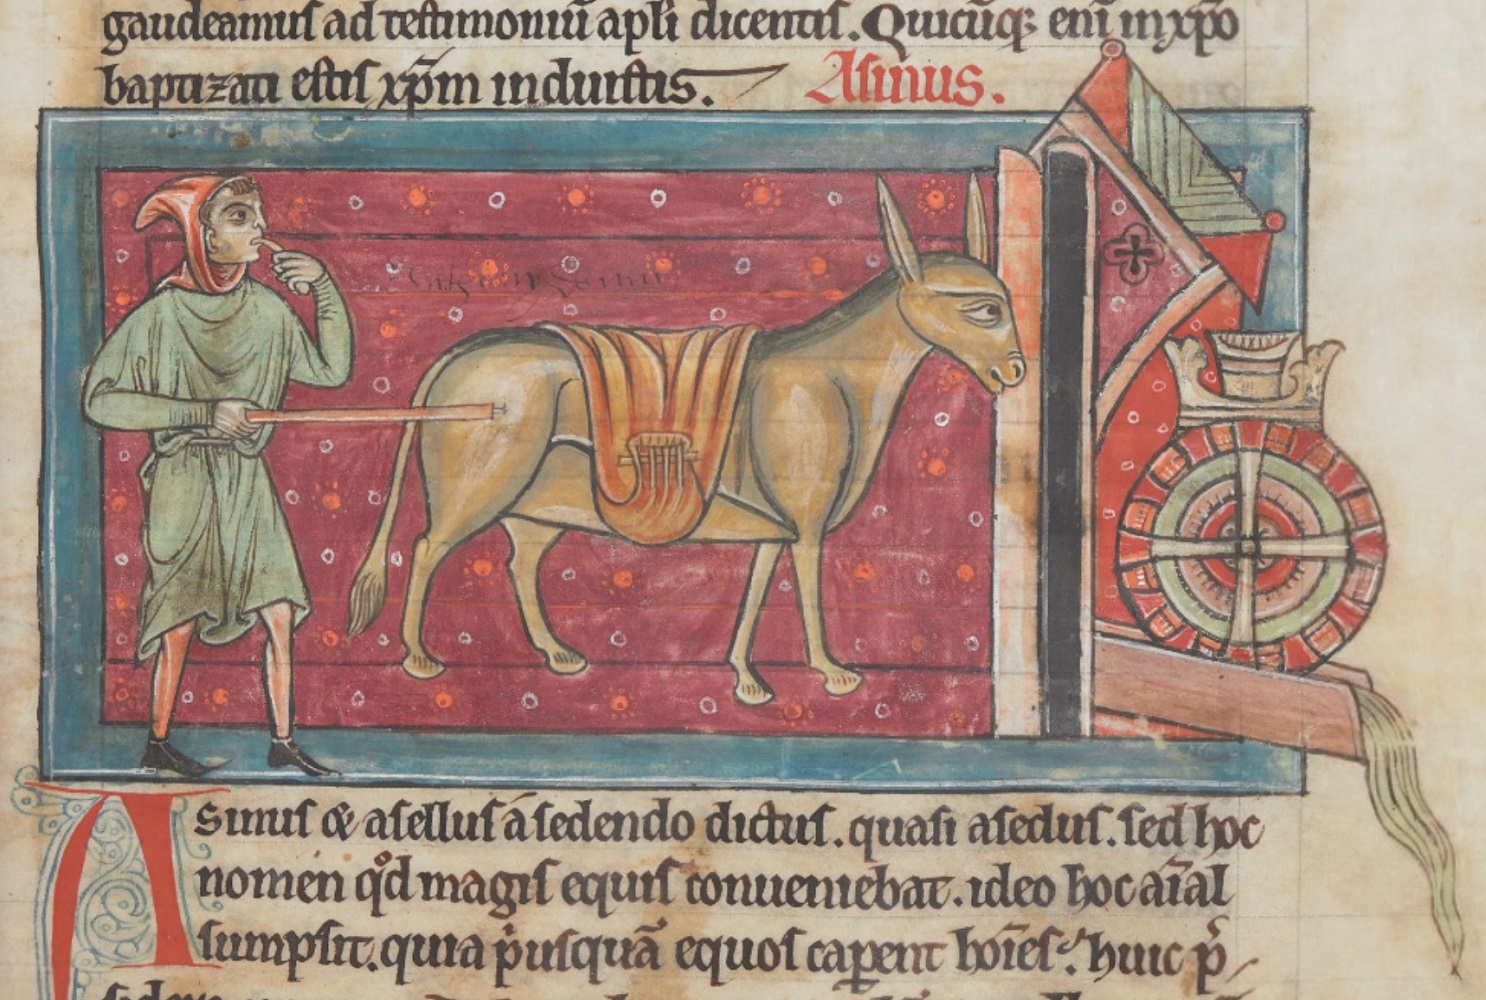 gaudeamus ad testimoniū apłi dicentis. Quicūq; eni in xpo
baptizati estis xp̄m induistis. Asinus.
Asinus & asellus a sedendo dictus. quasi asedus. sed hoc
nomen qd magis equis conueniebat. ideo hoc aīal
sumpsit. quia p̍usquā equos caꝑent hoīes. huic p̍